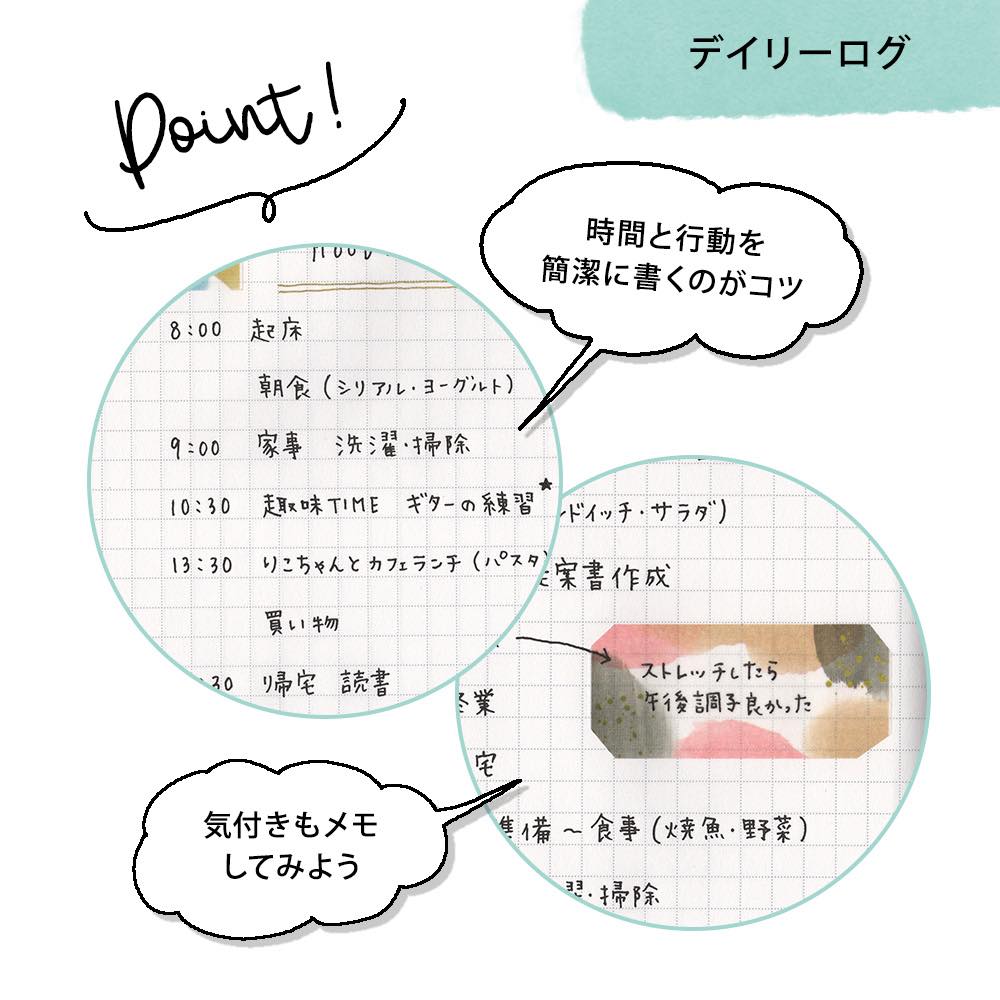 デイリーログ
Point!
時間と行動を
簡潔に書くのがコツ
8:00 起床
朝食(シリアル・ヨーグルト)
9:00 家事 洗濯・掃除
10:30 趣味TIME ギターの練習★
13:30 りこちゃんとカフェランチ(パスタ)
買い物
30 帰宅 読書
ドイッチ・サラダ)
案書作成
ストレッチしたら
午後調子良かった
業
宅
準備〜食事(焼魚・野菜)
濯・掃除
気付きもメモ
してみよう